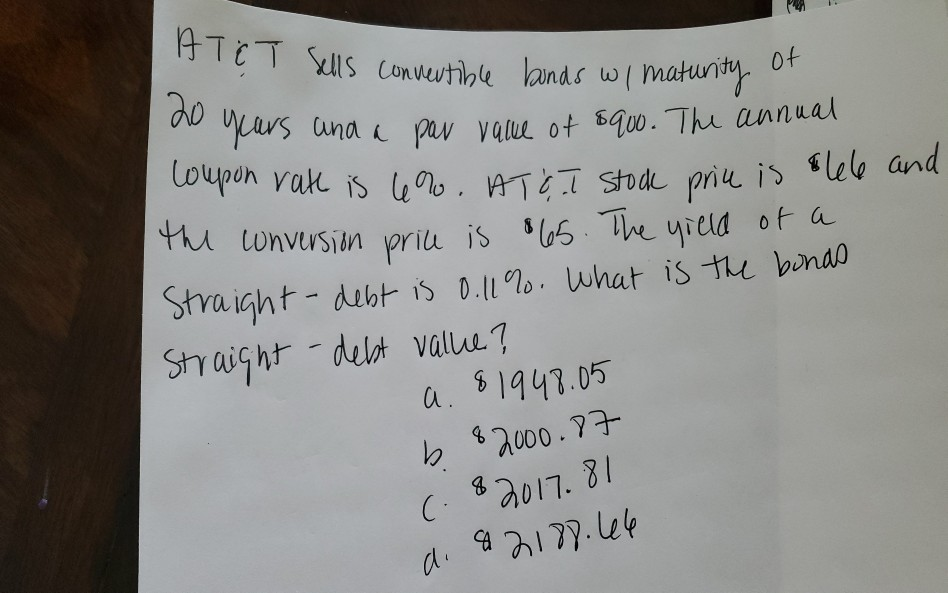 AT&T Sells convertible bonds w/ maturity of
20 years and a par value of $900. The annual
coupon rate is 6%. AT&T stock price is $66 and
the conversion price is $65. The yield of a
straight-debt is 0.11%. What is the bonds
straight-debt value?
a. $1948.05
b. $2000.87
c. $2017.81
d. $2188.66